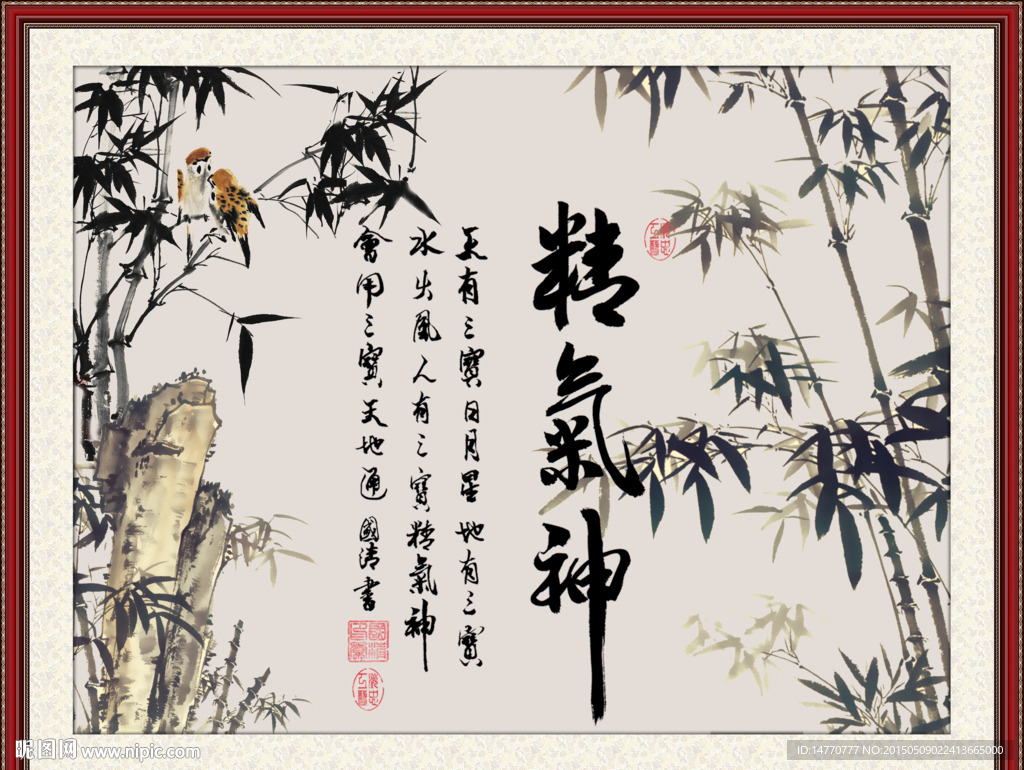 精氣神
天有三寶日月星地有三寶
水火風人有三寶精氣神
會用三寶天地通國清書
昵图网 www.nipic.com
ID:14770777 NO:20150509022413665000